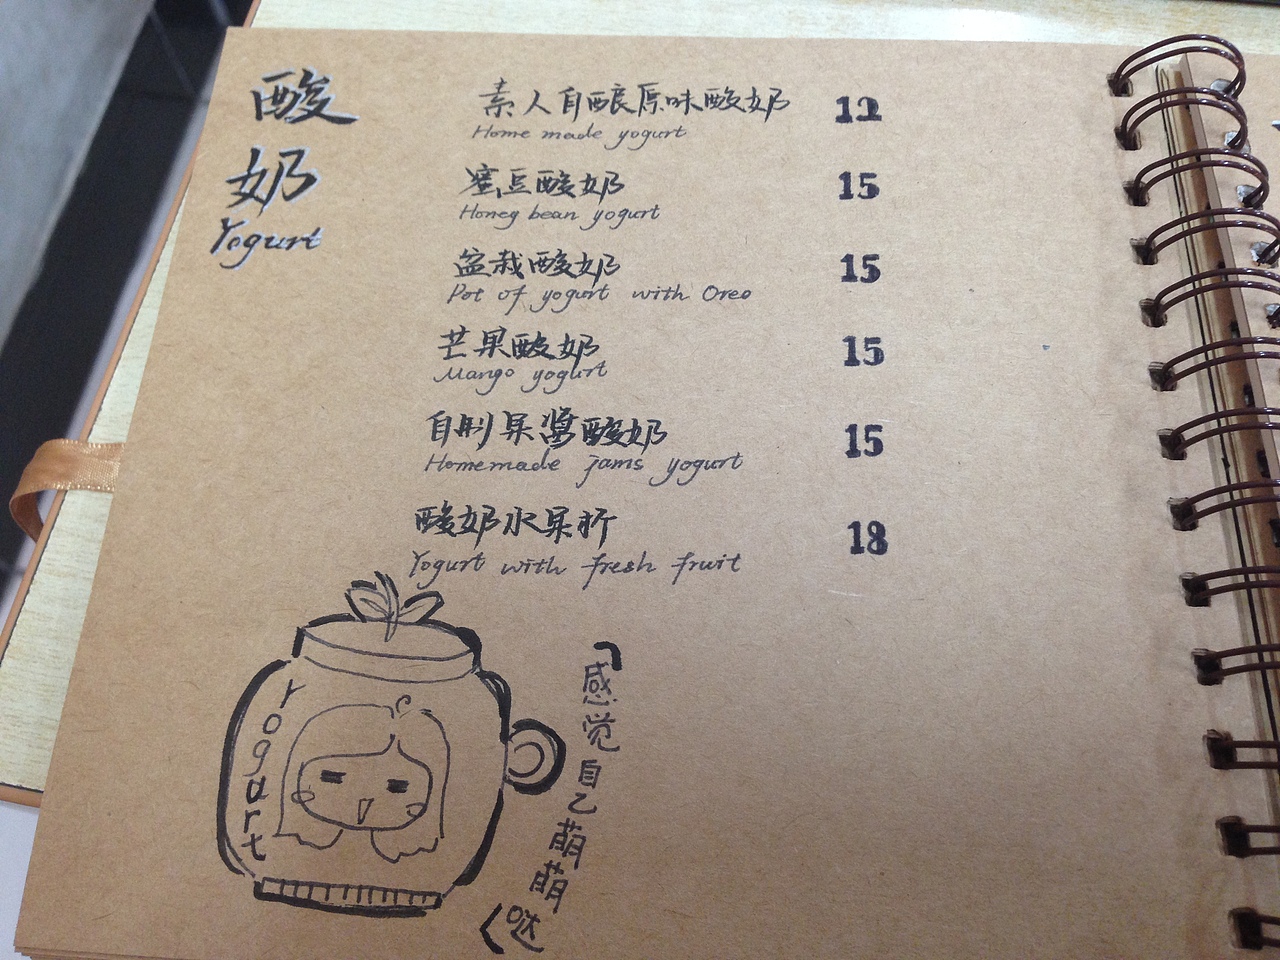 酸奶
Yogurt
素人自酿原味酸奶 12
Home made yogurt
蜜豆酸奶 15
Honey bean yogurt
盆栽酸奶 15
Pot of yogurt with Oreo
芒果酸奶 15
Mango yogurt
自制果酱酸奶 15
Homemade jams yogurt
酸奶水果析 18
Yogurt with fresh fruit
rogurt
「感觉自己萌萌哒」